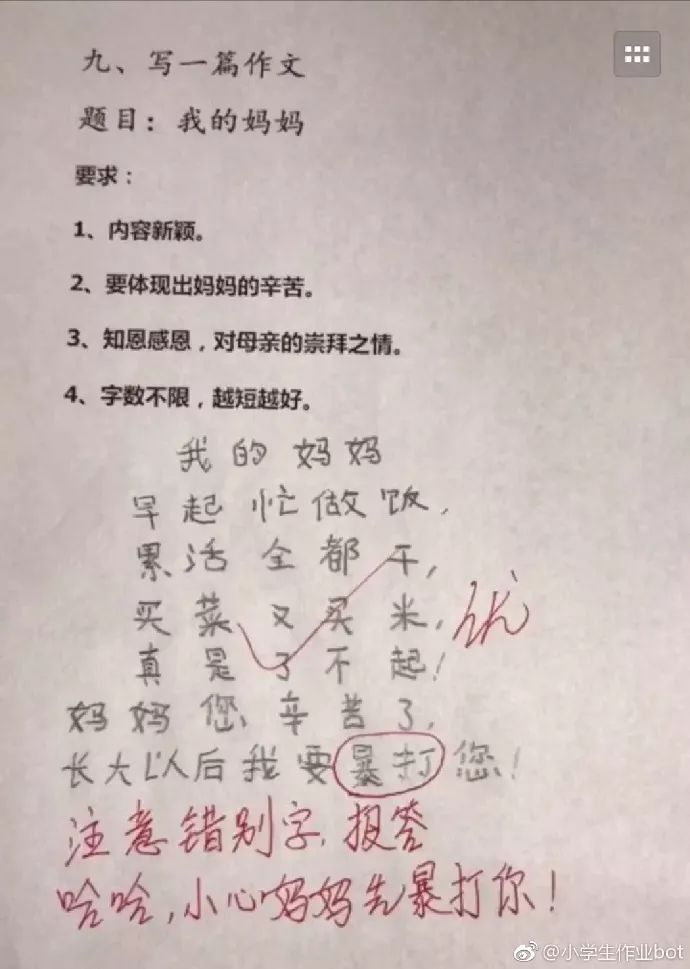 九、写一篇作文
题目：我的妈妈
要求：
1、内容新颖。
2、要体现出妈妈的辛苦。
3、知恩感恩，对母亲的崇拜之情。
4、字数不限，越短越好。
我的妈妈
早起忙做饭，
累活全都干，
买菜又买米，
优
真是了不起！
妈妈您辛苦了，
长大以后我要暴打您！
注意错别字，报答
哈哈，小心妈妈先暴打你！
@小学生作业bot